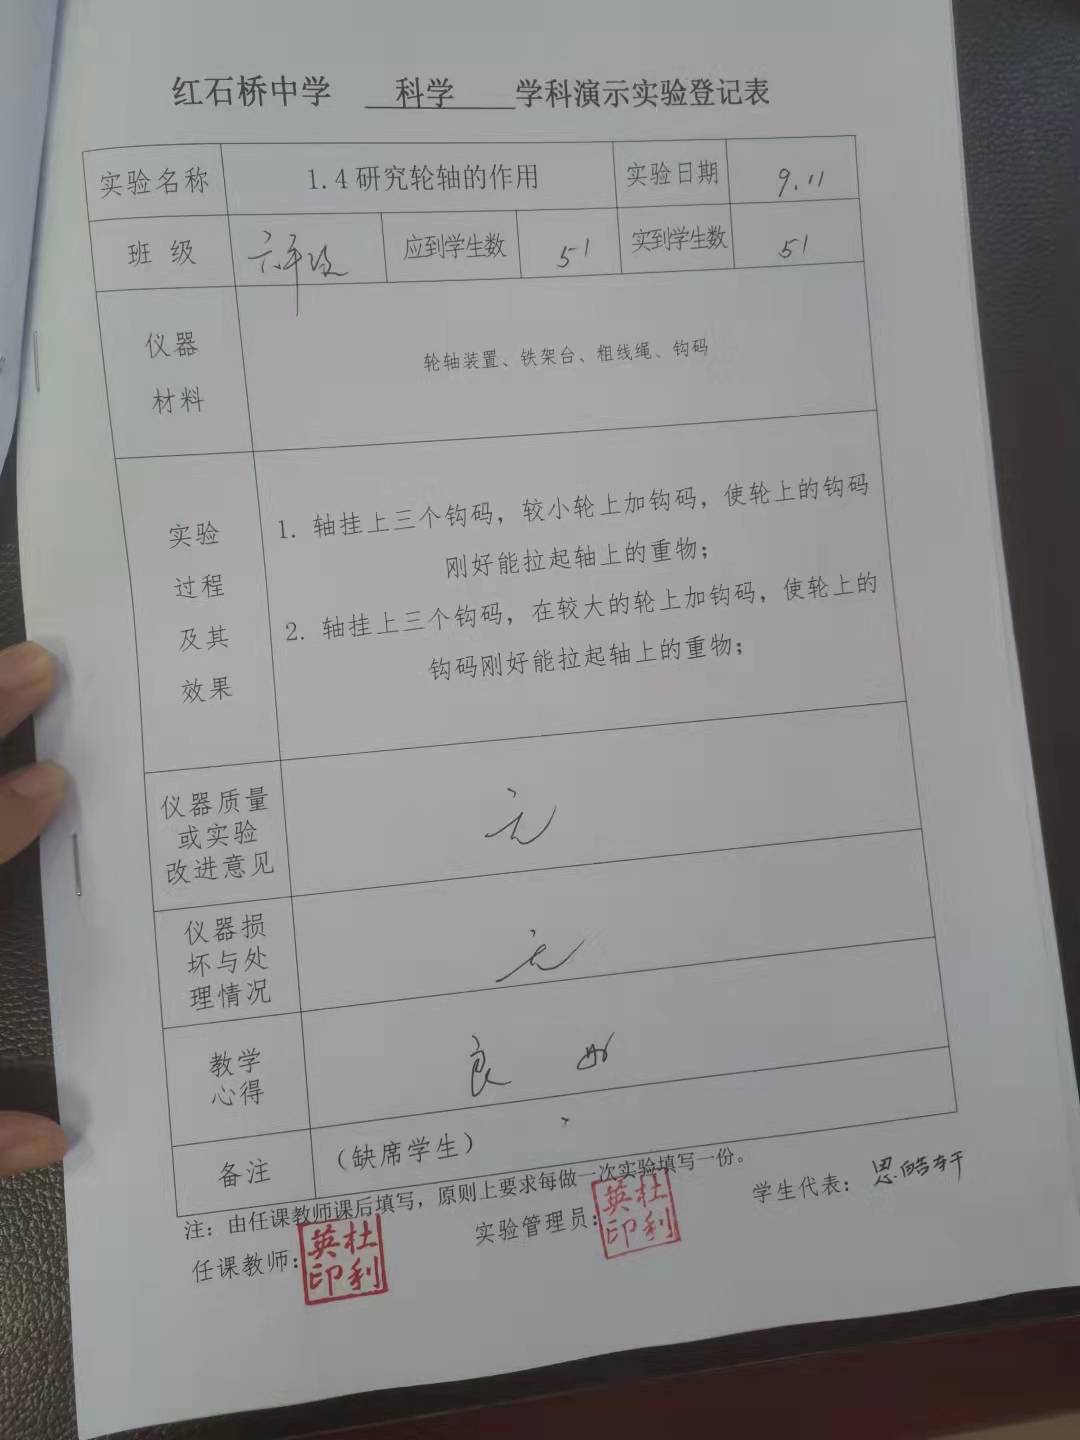 红石桥中学 科学 学科演示实验登记表
实验名称 1.4研究轮轴的作用 实验日期 9.11
班 级 六年级 应到学生数 51 实到学生数 51
仪器
材料
轮轴装置、铁架台、粗线绳、钩码
实验
过程
及其
效果
1. 轴挂上三个钩码，较小轮上加钩码，使轮上的钩码
刚好能拉起轴上的重物；
2. 轴挂上三个钩码，在较大的轮上加钩码，使轮上的
钩码刚好能拉起轴上的重物；
仪器质量
或实验
改进意见
无
仪器损
坏与处
理情况
无
教学
心得
良好
备注 （缺席学生）
注：由任课教师课后填写，原则上要求每做一次实验填写一份。
任课教师： 杜利英印 实验管理员： 杜利英印 学生代表： 思皓轩